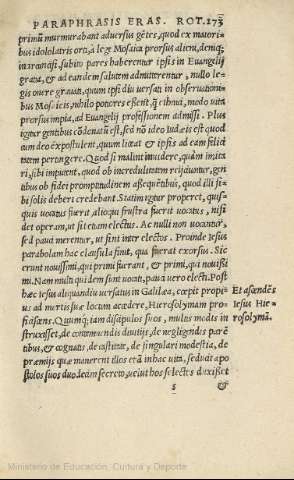 PARAPHRASIS ERAS. ROT. 273
primũ murmurabant aduersus gētes, quod ex maiori-
bus idololatris orti, à lege Mosaica prorsus alieni, demq;
intromissi, subito pares haberentur ipsis in Euangelij
gratia, & ad eandem salutem admitterentur, nullo le-
gis onere grauati, quum ipsi diu uersati in obseruationi-
bus Mosaicis, nihilo potiores essent, q̃ ethnici, modo uita
prorsus impia, ad Euangelij professionem admissi. Plus
igitur gentibus cōdonatũ est, sed nō ideo Iudæis est quod
cum deo expostulent, quum liceat & ipsis ad eam felici
tatem pertingere. Quod si malint inuidere, quàm imita
ri, sibi imputent, quod ob incredulitatem reijciuntur, gen
tibus ob fidei promptitudinem assequētibus, quod illi si-
bi solis deberi credebant. Statim igitur properet, quis-
quis uocatus fuerit, alioqui frustra fuerit uocatus, nisi
det operam, ut sit etiam electus. Ac nulli non uocantur,
sed pauci merentur, ut sint inter electos. Proinde Iesus
parabolam hac clausula finijt, qua fuerat exorsus. Sic
erunt nouissimi, qui primi fuerant, & primi, qui nouissi
mi. Nam multi quidem sunt uocati, pauci uero electi. Post
hæc Iesus aliquandiu uersatus in Galilæa, cœpit propi
us ad mortis suæ locum accedere, Hierosolymam pro-
ficiscens. Quumq; iam discipulos suos, multis modis in
struxisset, de contemnendis diuitijs, de negligendis parē
tibus, & cognatis, de castitate, de singulari modestia, de
præmijs quæ manerent illos etiã in hac uita, seducit apo
stolos suos duodecim secreto, ueluti hos selectos duxisset
Et ascendēs
Iesus Hie-
rosolymã.
s &
Ministerio de Educación, Cultura y Deporte